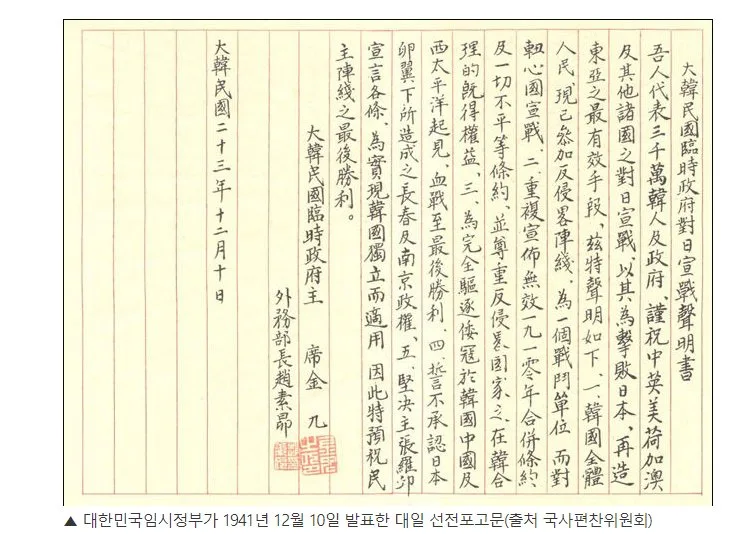 大韓民國臨時政府對日宣戰聲明書
吾人代表三千萬韓人及政府、謹祝中英美荷加澳
及其他諸國之對日宣戰、以其為擊敗日本、再造
東亞之最有效手段、玆特聲明如下、一、韓國全體
人民、現已參加反侵畧陣綫、為一個戰鬥單位、而對
軸心國宣戰、二、重複宣佈無效一九一零年合併條約
及一切不平等條約、並尊重反侵畧國家之在韓合
理的既得權益、三、為完全驅逐倭寇於韓國中國及
西太平洋起見、血戰至最後勝利、四、誓不承認日本
卵翼下所造成之長春及南京政權、五、堅决主張羅卯
宣言各條、為實現韓國獨立而適用 因此特預祝民
主陣綫之最後勝利。
大韓民國臨時政府主 席金 九
外務部長趙素昻
大韓民國二十三年十二月十日
▲ 대한민국임시정부가 1941년 12월 10일 발표한 대일 선전포고문(출처 국사편찬위원회)